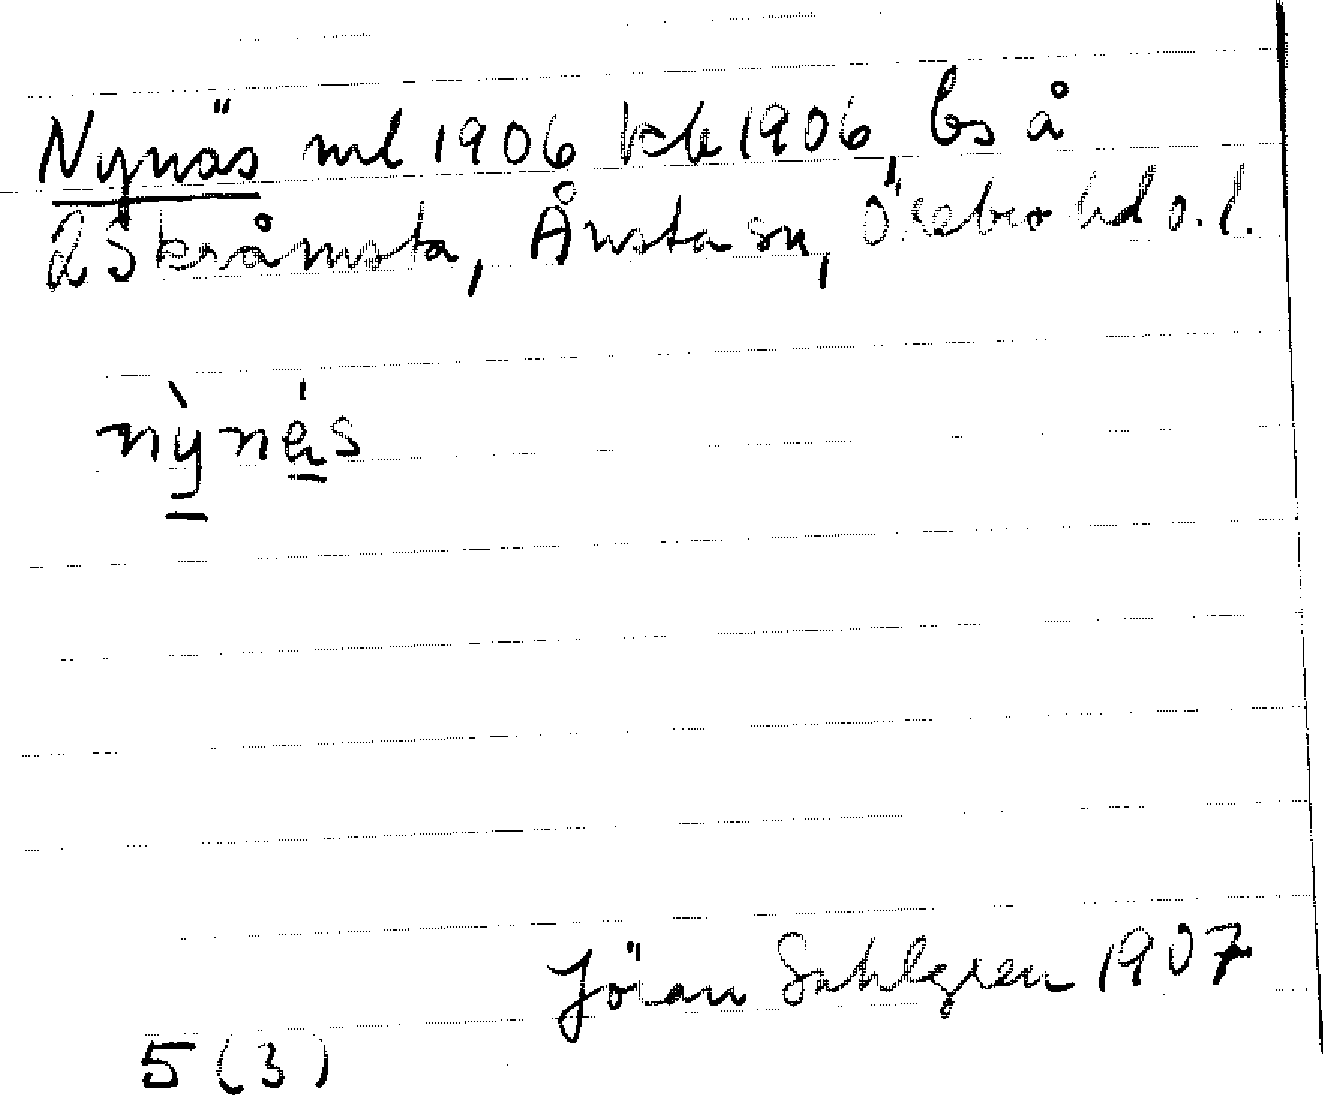 Nynäs ml 1906 kb 1906, bs å
2 Skråmsta, Ånsta sn, Örebro hd o. l.
nỳnä́s
Jöran Sahlgren 1907
5 (3)